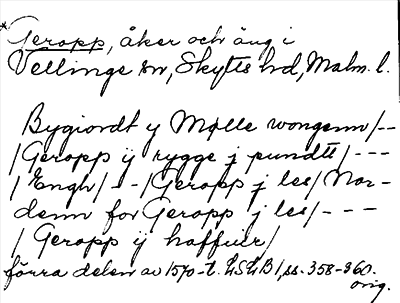 * Geropp, åker och äng i
Vellinge sn, Skytts hd, Malm. l.
Bygiordt y Mølle wongenn/--
/Geropp ij rygge j pundtt/---
/Engh/--/Geropp j les/Nor-
denn for Geropp j les/---
/Geropp ij haffuir/
förra delen av 1570-t. LSLB1, ss. 358-360.
orig.